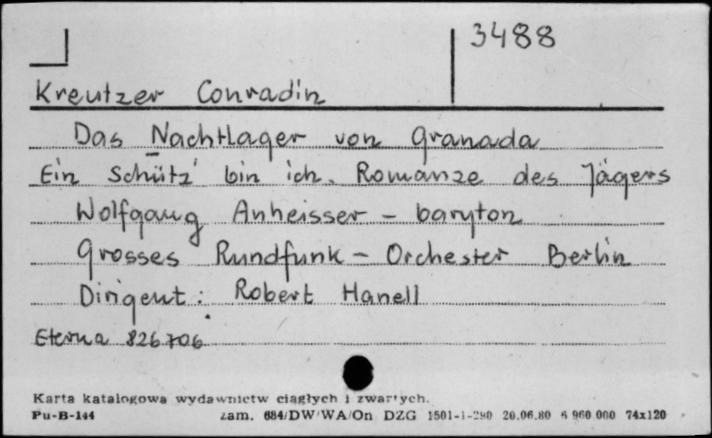 3488
Kreutzer Conradin
Das Nachtlager von Granada
Ein Schütz' bin ich. Romanze des Jägers
Wolfgang Anheisser - baryton
Grosses Rundfunk - Orchester Berlin
Dirigent: Robert Hanell
Eterna 826706
Karta katalogowa wydawnictw ciągłych i zwartych.
Pu-B-144 zam. 684/DW/WA/On DZG 1501-1-280 20.06.80 6 960 000 74x120